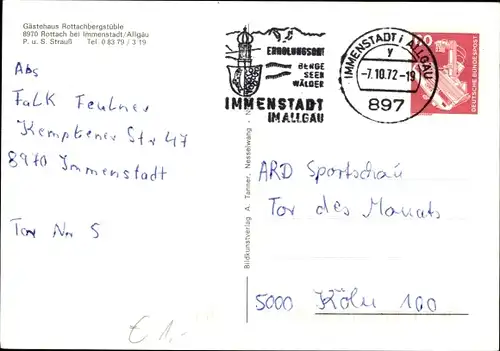 Gästehaus Rottachbergstüble
8970 Rottach bei Immenstadt/Allgäu
P. u. S. Strauß Tel 0 83 79 / 3 19
Abs
Falk Feutner
Kemptener Str 47
8970 Immenstadt
Tor Nr 5
€ 1,-
Bildkunstverlag A. Tanner, Nesselwang - N
ERHOLUNGSORT
BERGE
SEEN
WÄLDER
IMMENSTADT
IM ALLGÄU
IMMENSTADT i ALLGÄU
y
-7.10.72-19
897
DEUTSCHE BUNDESPOST
ARD Sportschau
Tor des Monats
5000 Köln 100